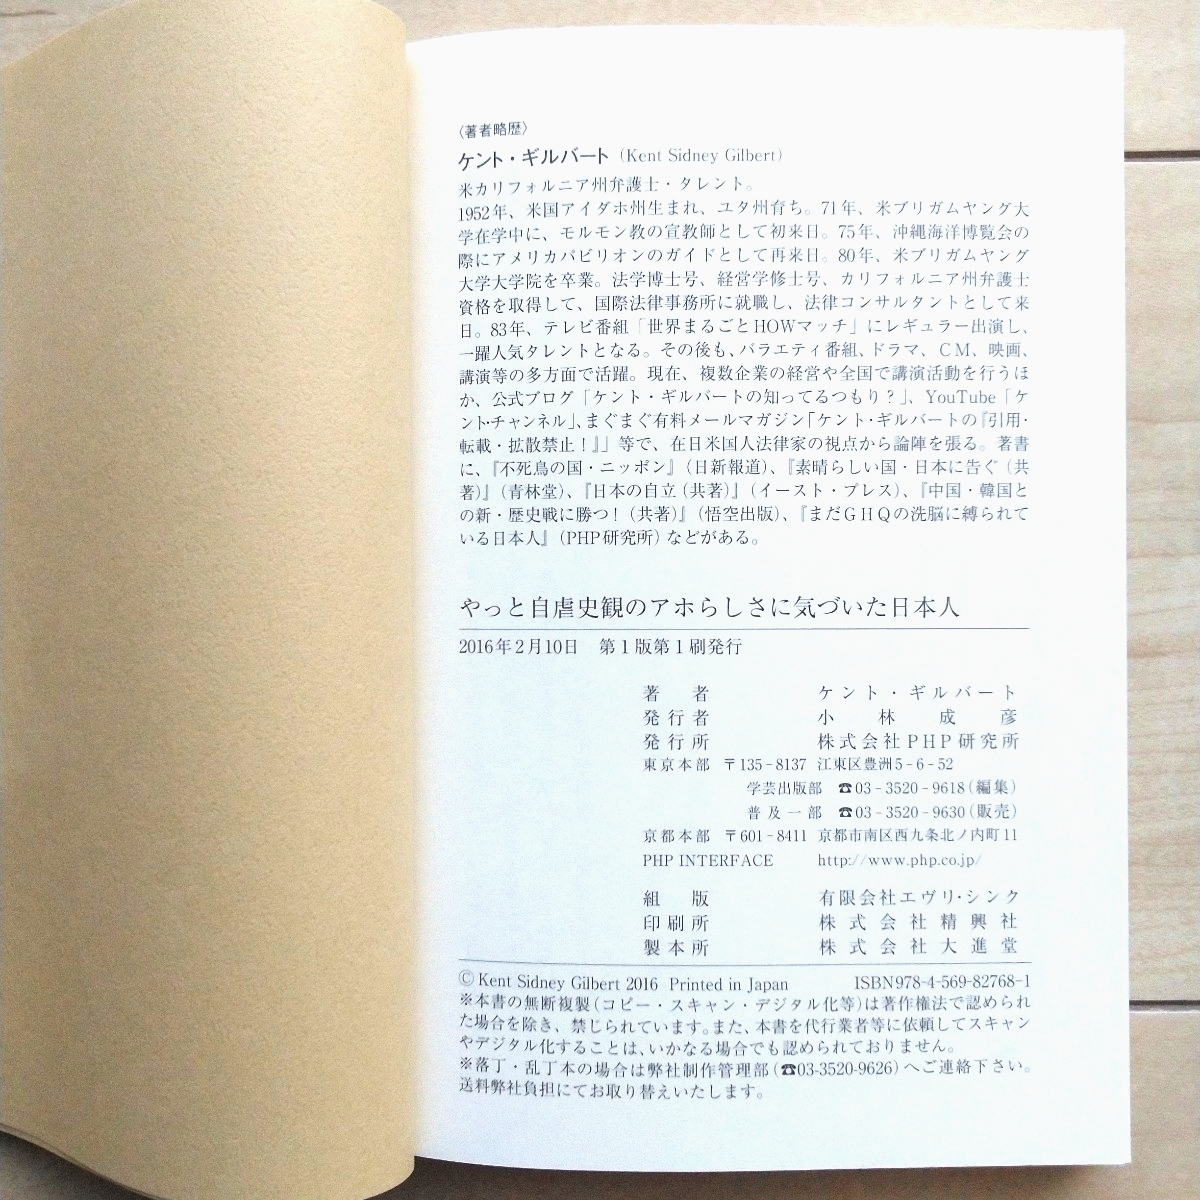 〈著者略歴〉
ケント・ギルバート（Kent Sidney Gilbert）
米カリフォルニア州弁護士・タレント。
1952年、米国アイダホ州生まれ、ユタ州育ち。71年、米ブリガムヤング大
学在学中に、モルモン教の宣教師として初来日。75年、沖縄海洋博覧会の
際にアメリカパビリオンのガイドとして再来日。80年、米ブリガムヤング
大学大学院を卒業。法学博士号、経営学修士号、カリフォルニア州弁護士
資格を取得して、国際法律事務所に就職し、法律コンサルタントとして来
日。83年、テレビ番組「世界まるごとHOWマッチ」にレギュラー出演し、
一躍人気タレントとなる。その後も、バラエティ番組、ドラマ、ＣＭ、映画、
講演等の多方面で活躍。現在、複数企業の経営や全国で講演活動を行うほ
か、公式ブログ「ケント・ギルバートの知ってるつもり？」、YouTube「ケ
ント・チャンネル」、まぐまぐ有料メールマガジン「ケント・ギルバートの『引用・
転載・拡散禁止！』」等で、在日米国人法律家の視点から論陣を張る。著書
に、『不死鳥の国・ニッポン』（日新報道）、『素晴らしい国・日本に告ぐ（共
著）』（青林堂）、『日本の自立（共著）』（イースト・プレス）、『中国・韓国と
の新・歴史戦に勝つ！（共著）』（悟空出版）、『まだＧＨＱの洗脳に縛られて
いる日本人』（PHP研究所）などがある。
やっと自虐史観のアホらしさに気づいた日本人
2016年２月10日　第１版第１刷発行
著者　ケント・ギルバート
発行者　小林成彦
発行所　株式会社ＰＨＰ研究所
東京本部　〒135-8137　江東区豊洲5-6-52
学芸出版部　☎03-3520-9618（編集）
普及一部　☎03-3520-9630（販売）
京都本部　〒601-8411　京都市南区西九条北ノ内町11
PHP INTERFACE　http://www.php.co.jp/
組版　有限会社エヴリ・シンク
印刷所　株式会社精興社
製本所　株式会社大進堂
© Kent Sidney Gilbert 2016 Printed in Japan　ISBN978-4-569-82768-1
※本書の無断複製（コピー・スキャン・デジタル化等）は著作権法で認められ
た場合を除き、禁じられています。また、本書を代行業者等に依頼してスキャン
やデジタル化することは、いかなる場合でも認められておりません。
※落丁・乱丁本の場合は弊社制作管理部（☎03-3520-9626）へご連絡下さい。
送料弊社負担にてお取り替えいたします。